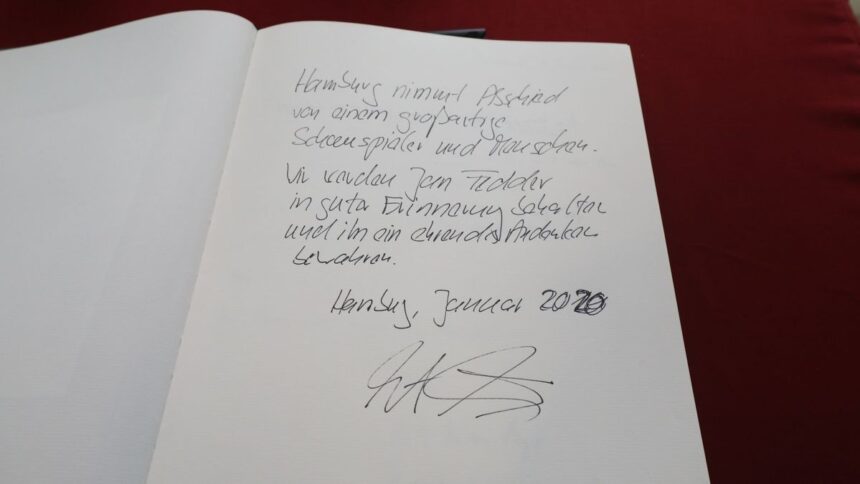 Hamburg nimmt Abschied
von einem großartige
Schauspieler und Menschen.
Wir werden Jan Fedder
in guter Erinnerung behalten
und ihm ein ehrendes Andenken
bewahren.
Hamburg, Januar 2020